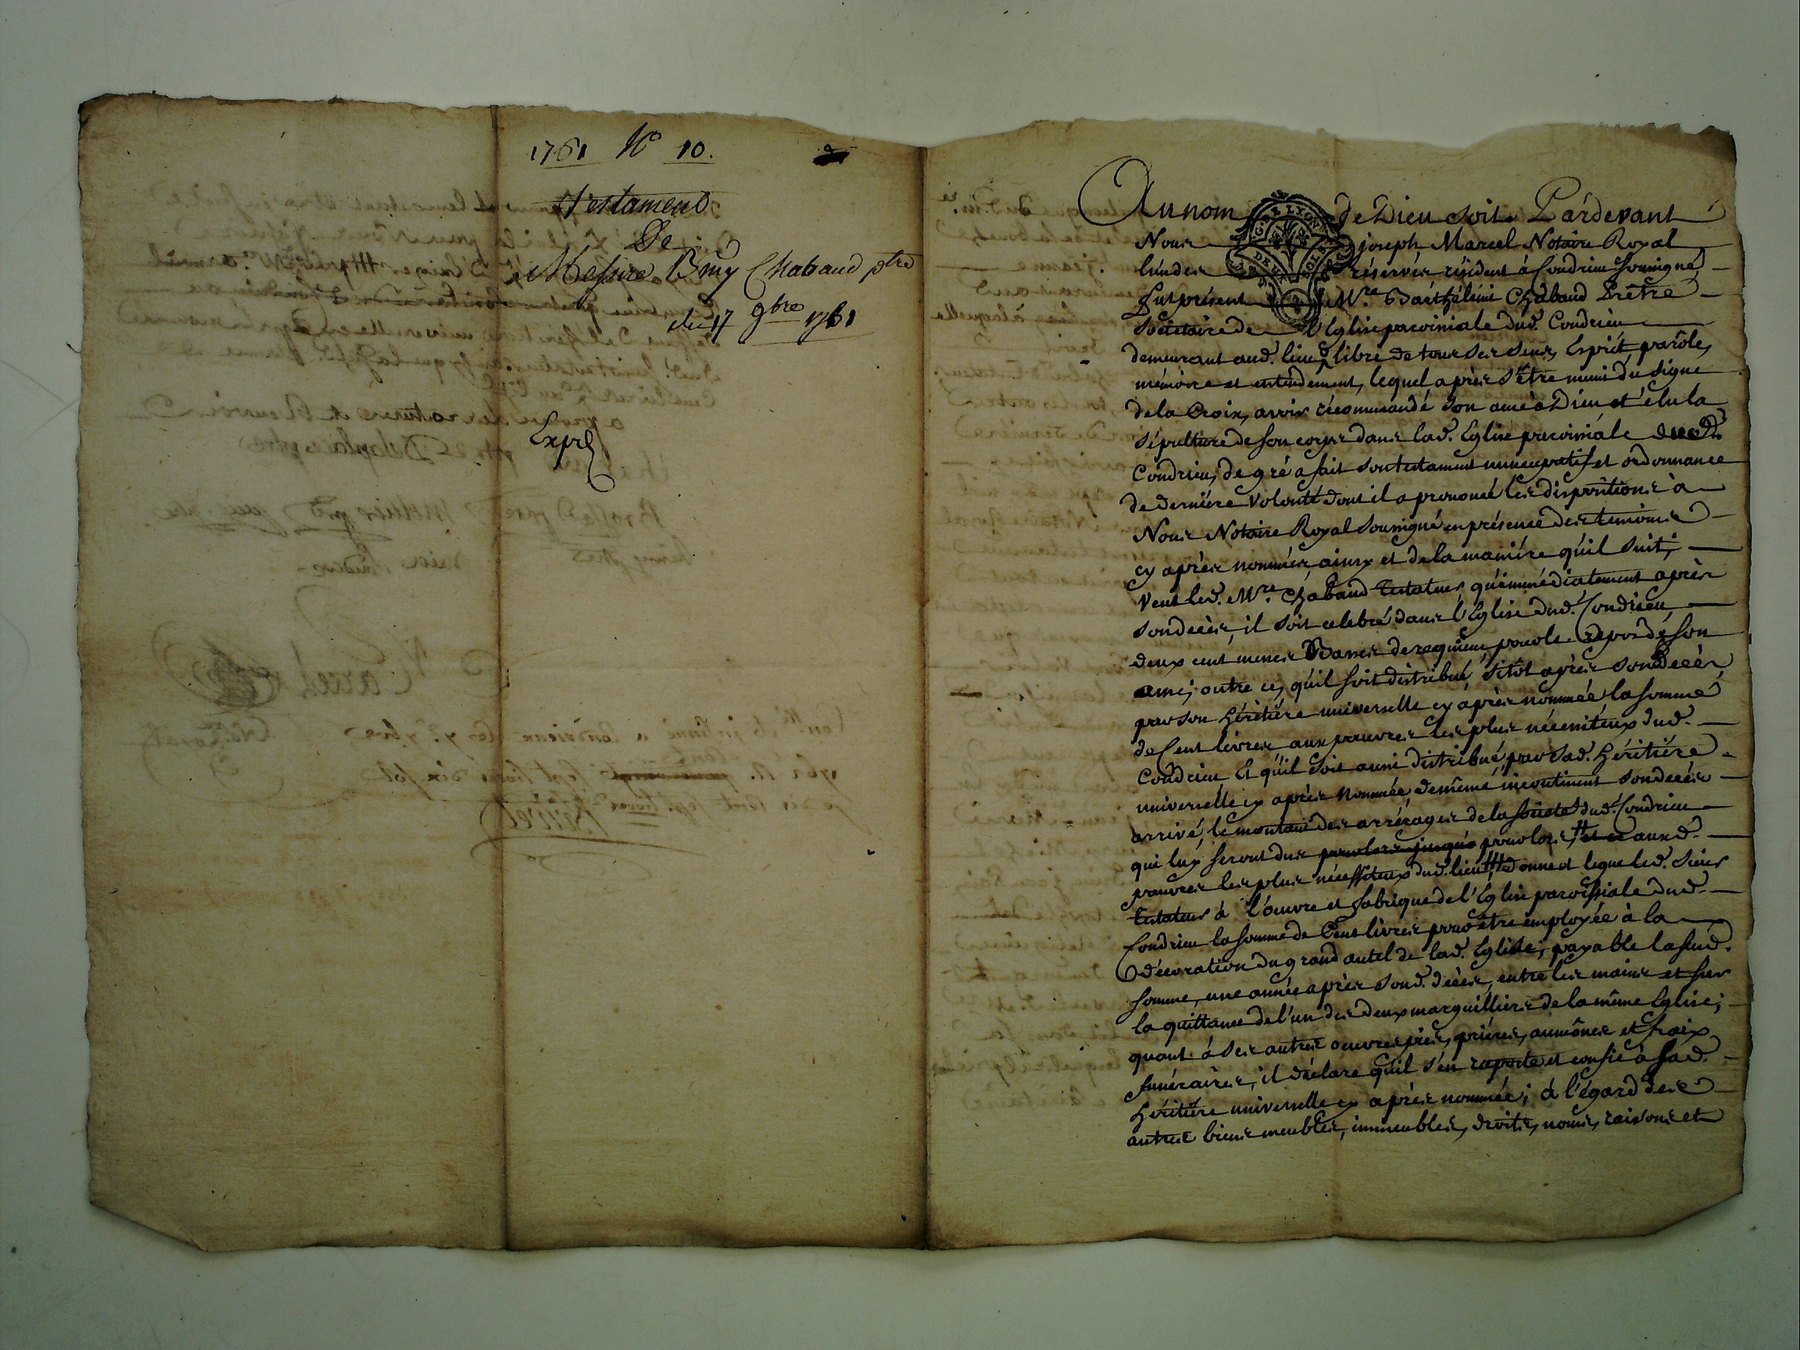 1761 No 10.
Testament
De
Messire Bmy Chabaud ptre
du 17 9bre 1761
Expé
Au nom de Dieu soit Pardevant
Nous joseph Marcel Notaire Royal
réservés résident à Condrieu soussigné
fut présent Mre Barthélémi Chabaud Prêtre
Sociétaire de l'Eglise paroissiale dud. Condrieu
demeurant aud. lieu, libre de tous ses sens, Esprit parôle,
mémoire et entendement, lequel après s'être muni du signe
de la Croix, avoir récommandé son ame à Dieu et élu la
sépulture de son corps dans lad. Eglise paroissiale dud.
Condrieu, de gré a fait son testament nuncupatif et ordonnance
de dernière volonté dont il a prononcé les dispositions à
Nous Notaire Royal soussigné en présence des temoins
cy après nommés ainsy et de la maniére qu'il suit;
Veut led. Mre Chabaud testateur qu'immédiatement après
son decès, il soit celebré dans l'Eglise dud. Condrieu,
deux cent messes Basses de requiem pour le repos de son
ame; outre ce, qu'il soit distribué sitôt après son decès
par son héritiére universelle cy après nommée la somme
de Cent livres aux pauvres les plus nécessiteux dud.
Condrieu Et qu'il soit aussi distribué par sad. héritiére
universelle cy après nommée de même incontinent son decès
arrivé, le montant des arrérages de la société dud. Condrieu
qui luy seront dus pour lors aux d.
pauvres les plus nécessiteux dud. lieu donne et legue led. Sieur
testateur à l'oeuvre et fabrique de l'Eglise paroissiale dud.
Condrieu la somme de Cent livres pour être employée à la
décoration du grand autel de lad. Eglise, payable la sud.
somme, une année après sond. décès, entre les mains et sur
la quittance de l'un des deux marguilliers de la même Eglise;
quant à ses autres oeuvres pies, priéres, aumônes et fraix
funéraires, il déclare qu'il s'en raporte et confie à sad.
héritiére universelle cy après nommée; à l'égard des
autres biens meubles, immeubles, droits, noms, raisons et